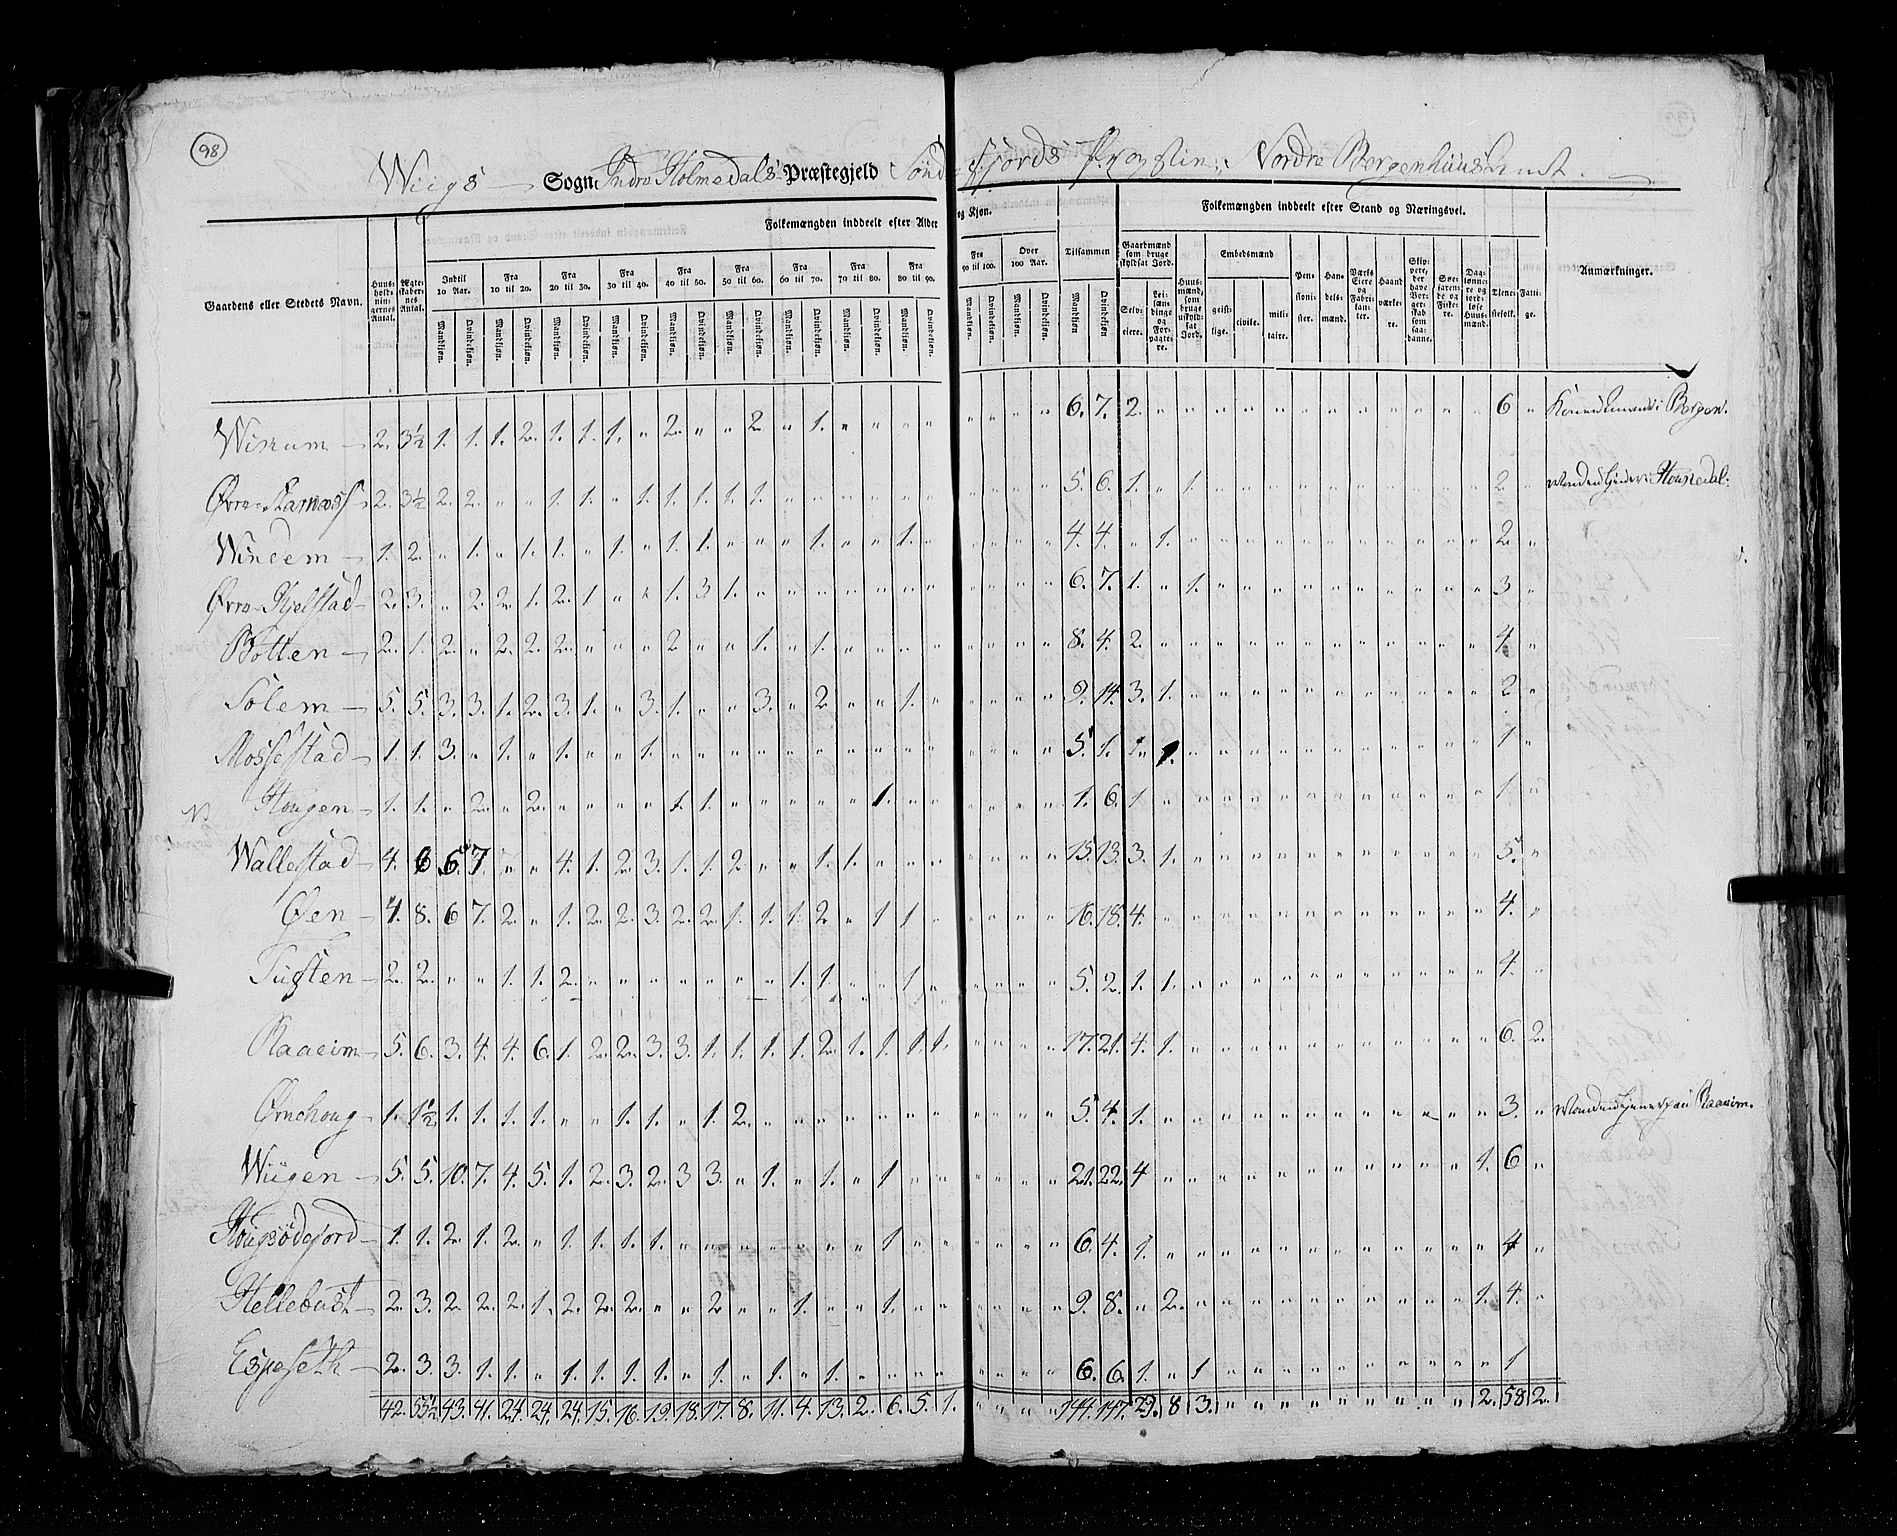 98
Wiigs Sogn Indre Holmedals Præstegjeld Sønd fjords Provstie, Nordre Bergenhuus Amt.
Folkemængden inddeelt efter Alder og Kjøn. Folkemængden inddeelt efter Stand og Næringsvei.
Gaardens eller Stedets Navn. Huusholdningernes Antal. Ægteskabernes Antal. Indtil 10 Aar. Fra 10 til 20. Fra 20 til 30. Fra 30 til 40. Fra 40 til 50. Fra 50 til 60. Fra 60 til 70. Fra 70 til 80. Fra 80 til 90. Fra 90 til 100. Over 100 Aar. Tilsammen Gaardmænd som bruge skyldsat Jord. Huusmænd, som bruge uskyldsat Jord. Embedsmænd Pensionister. Handelsmænd. Værks Eiere og Fabrikanter. Haandværkere. Skippere, der have Borgerskab som saadanne. Søefarende og Fiskere. Daglønnere og jordløse Huusmænd. Tjenestefolk. Fattige. Anmærkninger.
Mandkiøn. Qvindekiøn. Mandkiøn. Qvindekiøn. Mandkiøn. Qvindekiøn. Mandkiøn. Qvindekiøn. Mandkiøn. Qvindekiøn. Mandkiøn. Qvindekiøn. Mandkiøn. Qvindekiøn. Mandkiøn. Qvindekiøn. Mandkiøn. Qvindekiøn. Mandkiøn. Qvindekiøn. Mandkiøn. Qvindekiøn. Mandkiøn. Qvindekiøn. Selveiere. Leilændinge og Forpagtere. geistlige. civile. militaire.
2. 3½ 1. 1. 1. 2. 1. 1. 1. " 2. " " 2. " 1. " " " " " " " " 6. 7. 2. " " " " " " " " " " " " 6 " Bergen.
2. 3½ 2. 2. " " 1. 1. " 1. 1. 1. 1. 1. " " " " " " " " " " 5. 6. 1. " 1. " " " " " " " " " " 2. "
Windem 1. 2. " 1. " 1. 1. " 1. " 1. 1. " " " 1. " " 1. " " " " " 4. 4. " 1. " " " " " " " " " " " 2. "
Øvre Kjelstad 2. 3. " 2. 2. 1. 2. 1 " " 1. 3 1. " " " " " " " " " " " 6. 7. 1. " 1. " " " " " " " " " " 3 "
Botten 2. 1. 2. " 2. 2. 2. " " " 2. " " 1. " 1. " " " " " " " " 8. 4. 2. " " " " " " " " " " " " 4. "
Solem 5. 5. 3. 3. 1. 2. 3. 1. " 3. 1. " " 3. " 2. " " 1. " " " " " 9. 14. 3. 1. " " " " " " " " " " " 2. "
Mossestad 1. 1. 3. " 1. " 1. " " 1. " " " " " " " " " " " " " " 5. 1. " 1. " " " " " " " " " " " 1. "
Hougen 1. 1. " 2. " 2. " " " " 1. 1. " " " " " 1. " " " " " " 1. 6. 1. " " " " " " " " " " " " 1. "
Wallestad 4. 6 6. 7. " " 4. 1. 2. 3. 1. 1. 2 " " 1. 1. " " " " " " " 15. 13. 3. 1. " " " " " " " " " " " 5. "
Øen 4. 8. 6 7. 2. " 1. 2. 2. 3. 2. 2. 1. 1. 1. 2. " 1 1. " " " " " 16. 18. 4. " " " " " " " " " " " " 4. "
Tuften 2. 2. " " 1. 1. 2. " " " " " " " 1. 1. " " 1. " " " " " 5. 2. 1. 1. " " " " " " " " " " " 4. "
Raaeim 5. 6. 3. 4. 4. 6. 1. 2. 2. 3. 3. 1. 1. 1. 1. 2. 1. 1. 1. 1. " " " " 17. 21. 4. 1. " " " " " " " " " " " 6. 2.
Ørnehoug 1. 1½ 1. 1. 1. 1. " " 1. 1. " 1. 2. " " " " " " " " " " " 5. 4. 1. " " " " " " " " " " " " 3. " Raaeim.
Wiigen 5. 5. 10. 7. 4. 5. 1. 2. 3. 2. 3 3. " 1. " 1. " 1 " " " " " " 21. 22. 4 " " " " " " " " " " " 1. 6 "
1. 1. 2. 1. 2. " 1. 1. 1. 1. " " " " " " " 1 " " " " " " 6. 4. 1. " " " " " " " " " " " " 4 "
Hellebust 2. 3. 2. 2. 2. 1. 2. 2. 2. " " 2 " " 1. " " 1. " " " " " " 9. 8. " 2. " " " " " " " " " " 1. 4. "
Espeseth 2. 3. 3. 1. 1. " 1. 1. 1. 1. " 1. " 1. " 1. " " " " " " " " 6. 6. 1. " 1 " " " " " " " " " " 1 "
42. 55½ 43. 41. 24. 24. 24. 15. 16. 19. 18. 17. 8. 11. 4. 13. 2. 6. 5. 1. " " " " 144. 147. 29. 8 3. " " " " " " " " " 2. 58 2.